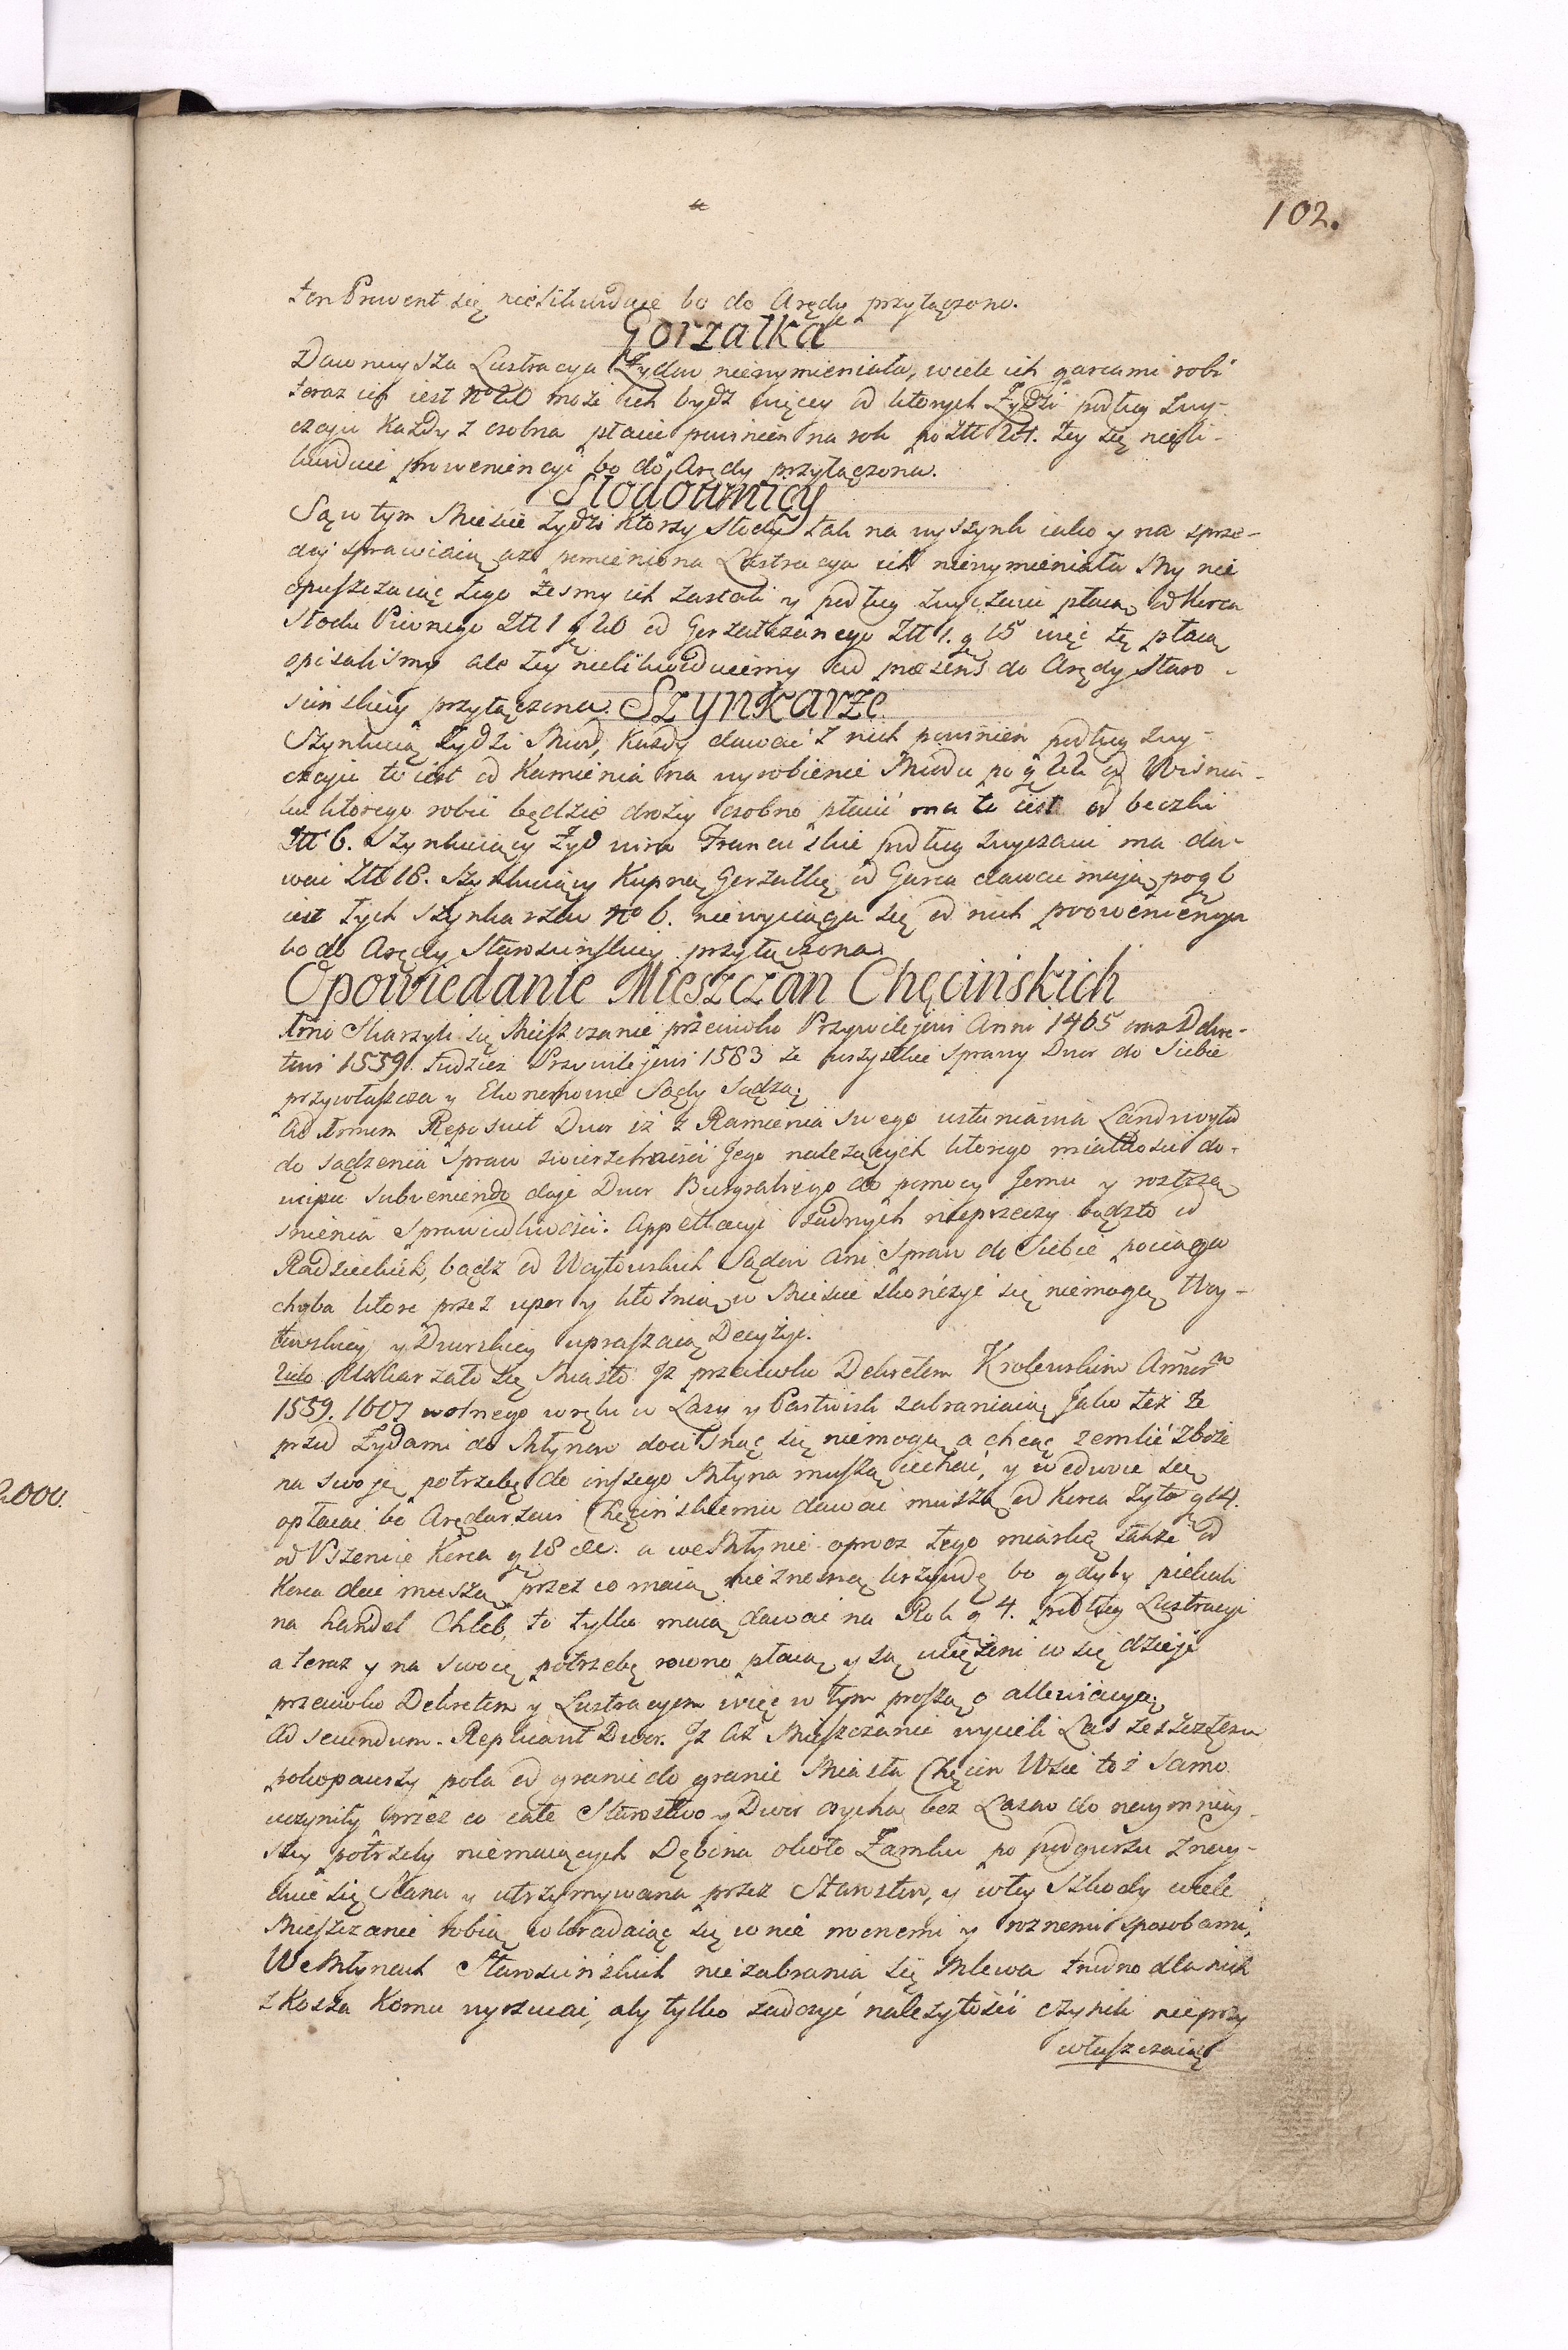 102.
ten Prowent się nie likwiduie bo do Arędy przyłączono.
Gorzałka
Dawnieysza Lustracya Żydow niewymieniała, wiele ich garcami robi
teraz ich iest No 20 może ich bydź więcey od ktorych Żydzi podług zwy-
czaju Każdy z osobna płacić powinien na rok po Złł 24. tey się nieli-
kwiduie proweniencyi bo do Arędy przyłączona.
Słodownicy
Są w tym Mieście Żydzi Ktorzy słody tak na wyszynk iako y na sprze-
daj sprawiaią aże pomieniona Lustracya ich niewymieniała My nie
opuszczaiąc tego żesmy ich zastali y podług zwyczaiu płacą od Korca
słodu Piwnego Złł 1 g 20 od Gorzałczanego Złł 1. g 15 więc tę płacą
opisalismy ale tey nielikwiduiemy ad præsens do Arędy Staro-
scinskiey przyłączona. Szynkarze
Szynkuią Żydzi Miod, Każdy dawać z nich powinien podług zwy-
czaju to iest od Kamienia na wyrobienie Miodu po g od Wisnia-
ku ktorego robić będzie drożey osobno płacić ma to iest od beczki
Złł 6. Szynkuiący Żyd wina Francuskie podług zwyczaiu ma da-
wać Złł 18. Szynkuiący Kupną Gorzałkę od Garca dawać mają po g 6
iest tych szynkarzow No 6. niewyciąga się od nich prowenięcya
bo do Arędy Starościńskiey przyłączona.
Opowiedanie Mieszczan Chęcińskich
1mo Skarzyli się Mieszczanie przeciwko Przywilejowi Anni 1465 oraz Dekre-
towi 1559. tudzież Przywilejowi 1583 że wszystkie sprawy Dwor do Siebie
przywłaszcza y Ekonomowie Sądy sądzą
Ad 1mum Reposuit Dwor iż z Ramienia swego ustanawia Landwoyta
do sądzenia Spraw zwierzchności Jego należących ktorego miałkości do-
wcipu subveniendo daje Dwor Burgrabiego do pomocy Jemu y roztrzą
snienia Sprawiedliwości. Appellacyi żadnych nieprzeczy bądźto od
Radzieckich, bądź od Woytowskich Sądow ani Spraw do Siebie pociąga
chyba ktore przez upor y kłotnią w Mieście skończyć się niemogą Woy-
towskiey y Dworskiey upraszaią Decyzyi.
2do Uskarzało się Miasto Jż przeciwko Dekretem Krolewskim Annorum
1559. 1607 wolnego wrębu w Lasy y Pastwisk zabraniaią Jako też że
przed Żydami do Młynow docisnąć się niemogą a chcąc zemlić Zboże
na swoję potrzebę do inszego Młyna muszą iechać, y w dwoie się
opłacać bo Arędarzowi Chęcinskiemu dawać muszą od Korca żyta g 14.
od Pszenice Korca g 18 a we Młynie oprocz tego miarkę także od
Korca dać muszą przez co maią nieznosną krzywdę bo gdyby piekali
na handel Chleb, to tylko maią dawać na Rok g 4. podług Lustracyi
a teraz y na swoię potrzebę rowno płacą y są uciężeni co się dzieje
przeciwko Dekretem y Lustracyom więc w tym proszą o allewiacyą
Ad secundum. Replicavit Dwor. Jż Aż Mieszczanie wycieli Las ze szczętem
pokopawszy pola od granic do granic Miasta Chęcin Wsie toż samo
uczyniły przez co całe Starostwo y Dwor bez Lasow do naymniey-
szey potrzeby niemaiących Dębina około Zamku po podgurzu znay-
duie się Słana y utrzymywana przez Starostw, y wtey Szkody wiele
Mieszczanie robią wkradaiąc się w nie nocnemi y roznemi sposobami,
We Młynach Starościńskich niezabrania się Mlewa trudno dla nich
z Kosza Komu wyrzucać, aby tylko zadosyć należytości czynili nieprzy
właszczaiąc
2000.